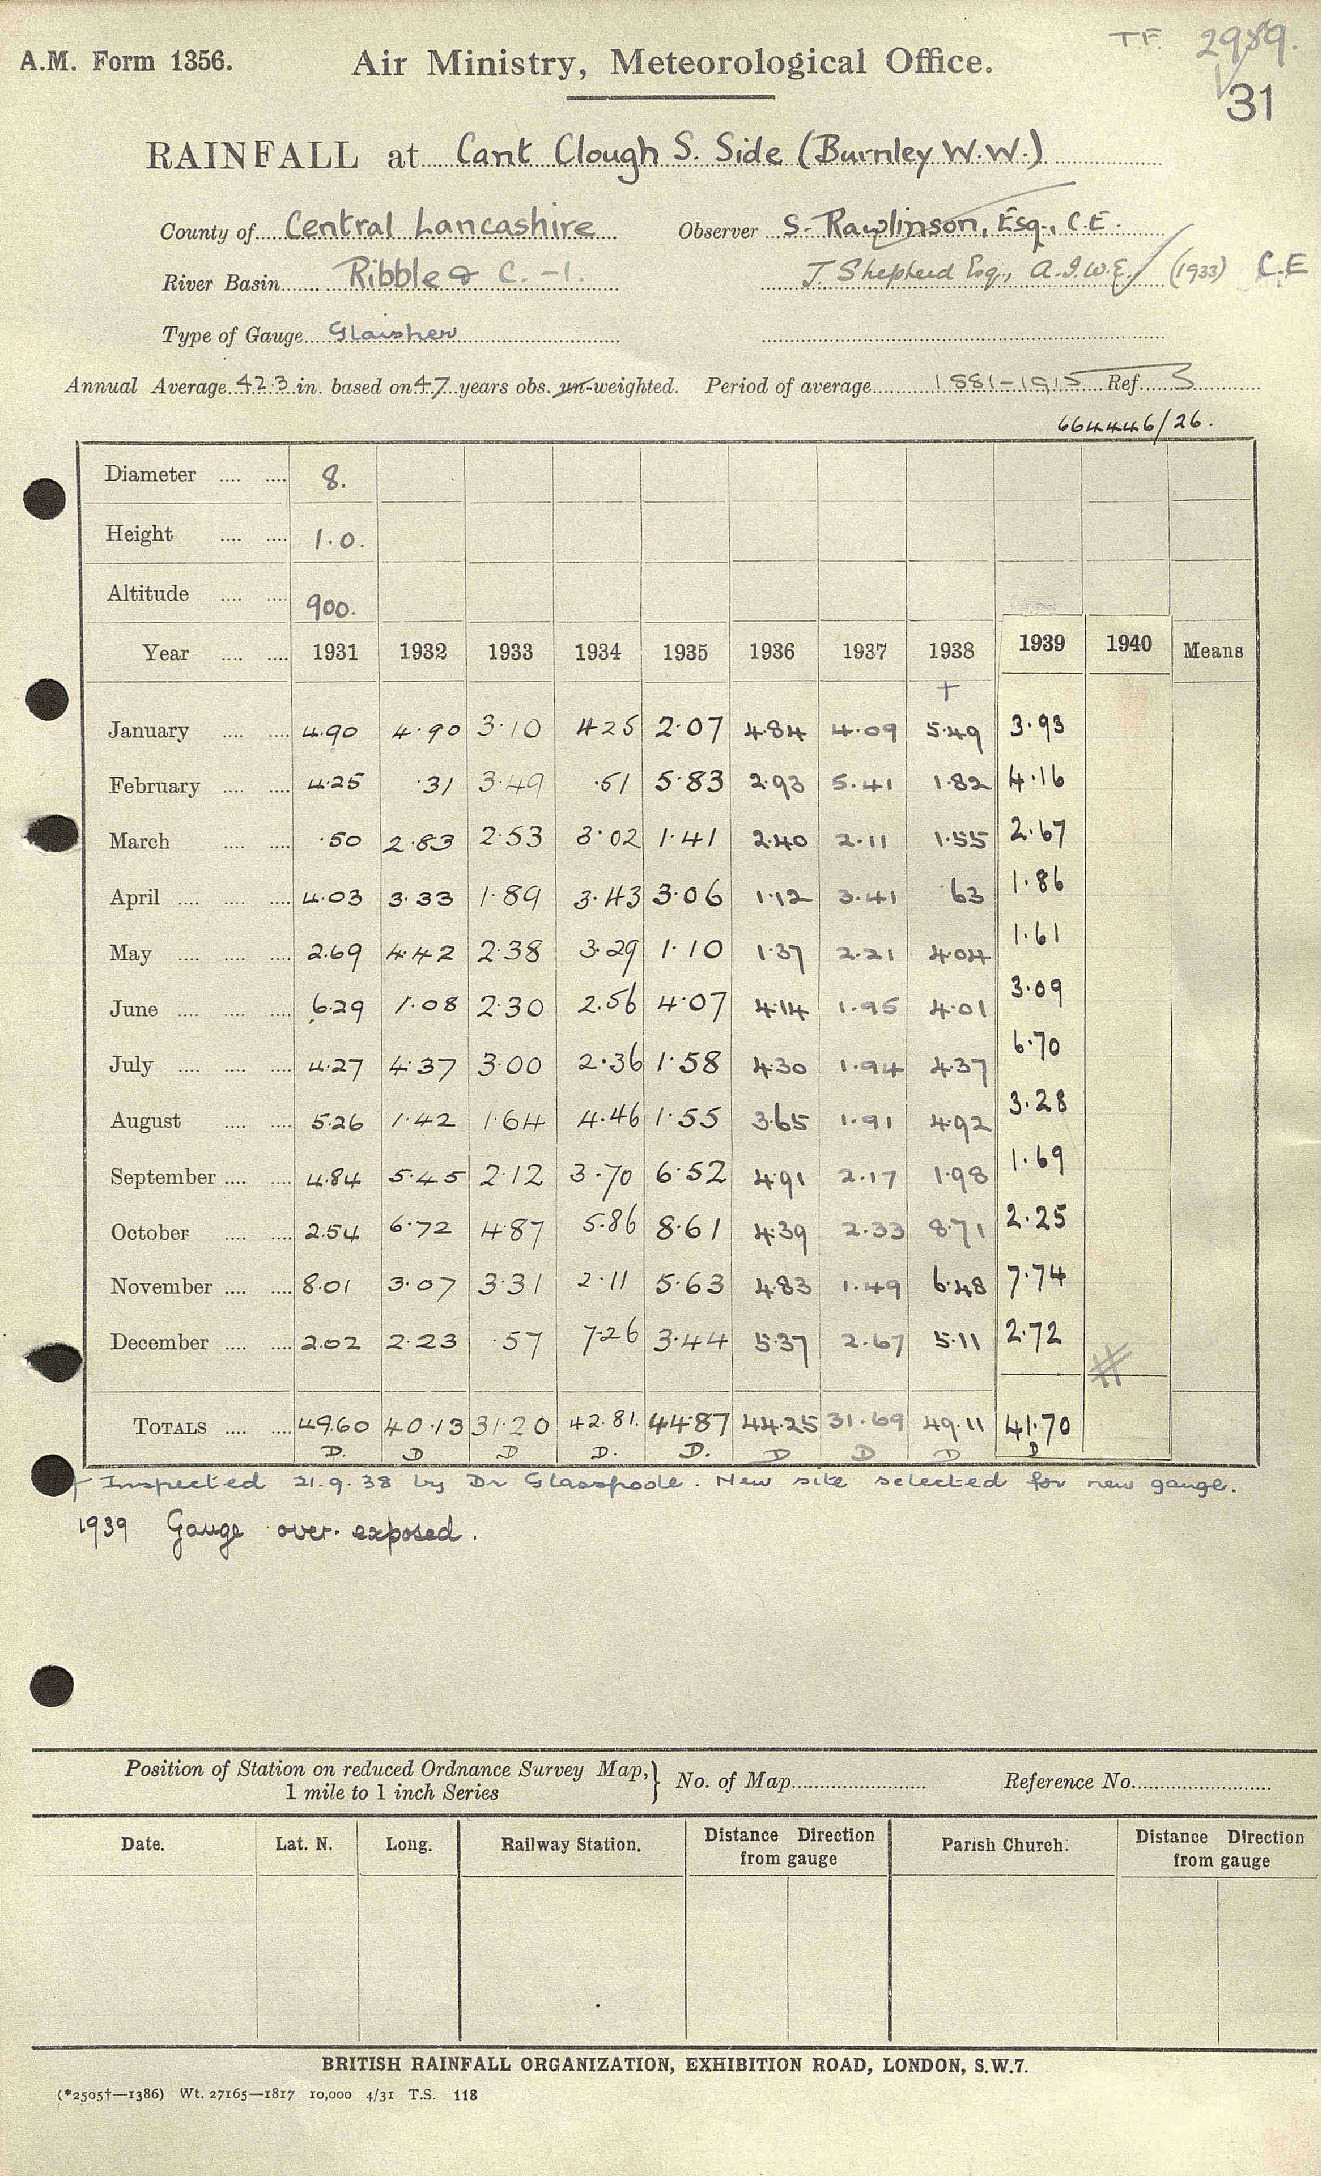 T.F. 2989.
A.M. Form 1356. Air Ministry, Meteorological Office.
31
RAINFALL at Cant Clough S. Side (Burnley W.W.)
County of Central Lancashire Observer S. Rawlinson, Esq., C.E.
River Basin Ribble & C. -1. J. Shepherd Esq., A.I.W.E. (1933) C.E
Type of Gauge Glaisher
Annual Average 42.3 in. based on 47 years obs. un-weighted. Period of average 1881-1915 Ref. 3
664446/26.
Diameter 8.
Height 1.0.
Altitude 900.
Year 1931 1932 1933 1934 1935 1936 1937 1938 1939 1940 Means
+
January 4.90 4.90 3.10 4.25 2.07 4.84 4.09 5.49 3.93
February 4.25 .31 3.49 .51 5.83 2.93 5.41 1.82 4.16
March .50 2.83 2.53 3.02 1.41 2.40 2.11 1.55 2.67
April 4.03 3.33 1.89 3.43 3.06 1.12 3.41 .63 1.86
May 2.69 4.42 2.38 3.29 1.10 1.37 2.21 4.04 1.61
June 6.29 1.08 2.30 2.56 4.07 4.14 1.95 4.01 3.09
July 4.27 4.37 3.00 2.36 1.58 4.30 1.94 4.37 6.70
August 5.26 1.42 1.64 4.46 1.55 3.65 1.91 4.92 3.28
September 4.84 5.45 2.12 3.70 6.52 4.91 2.17 1.98 1.69
October 2.54 6.72 4.87 5.86 8.61 4.39 2.33 8.71 2.25
November 8.01 3.07 3.31 2.11 5.63 4.83 1.49 6.48 7.74
December 2.02 2.23 .57 7.26 3.44 5.37 2.67 5.11 2.72
#
TOTALS 49.60 40.13 31.20 42.81. 44.87 44.25 31.69 49.11 41.70
D. D D D. D. D D D D
+ Inspected 21.9.38 by Dr Glasspoole. New site selected for new gauge.
1939 Gauge over-exposed.
Position of Station on reduced Ordnance Survey Map, } No. of Map Reference No.
1 mile to 1 inch Series
Date. Lat. N. Long. Railway Station. Distance Direction from gauge Parish Church. Distance Direction from gauge
BRITISH RAINFALL ORGANIZATION, EXHIBITION ROAD, LONDON, S.W.7.
(*2505†—1386) Wt. 27165—1817 10,000 4/31 T.S. 118